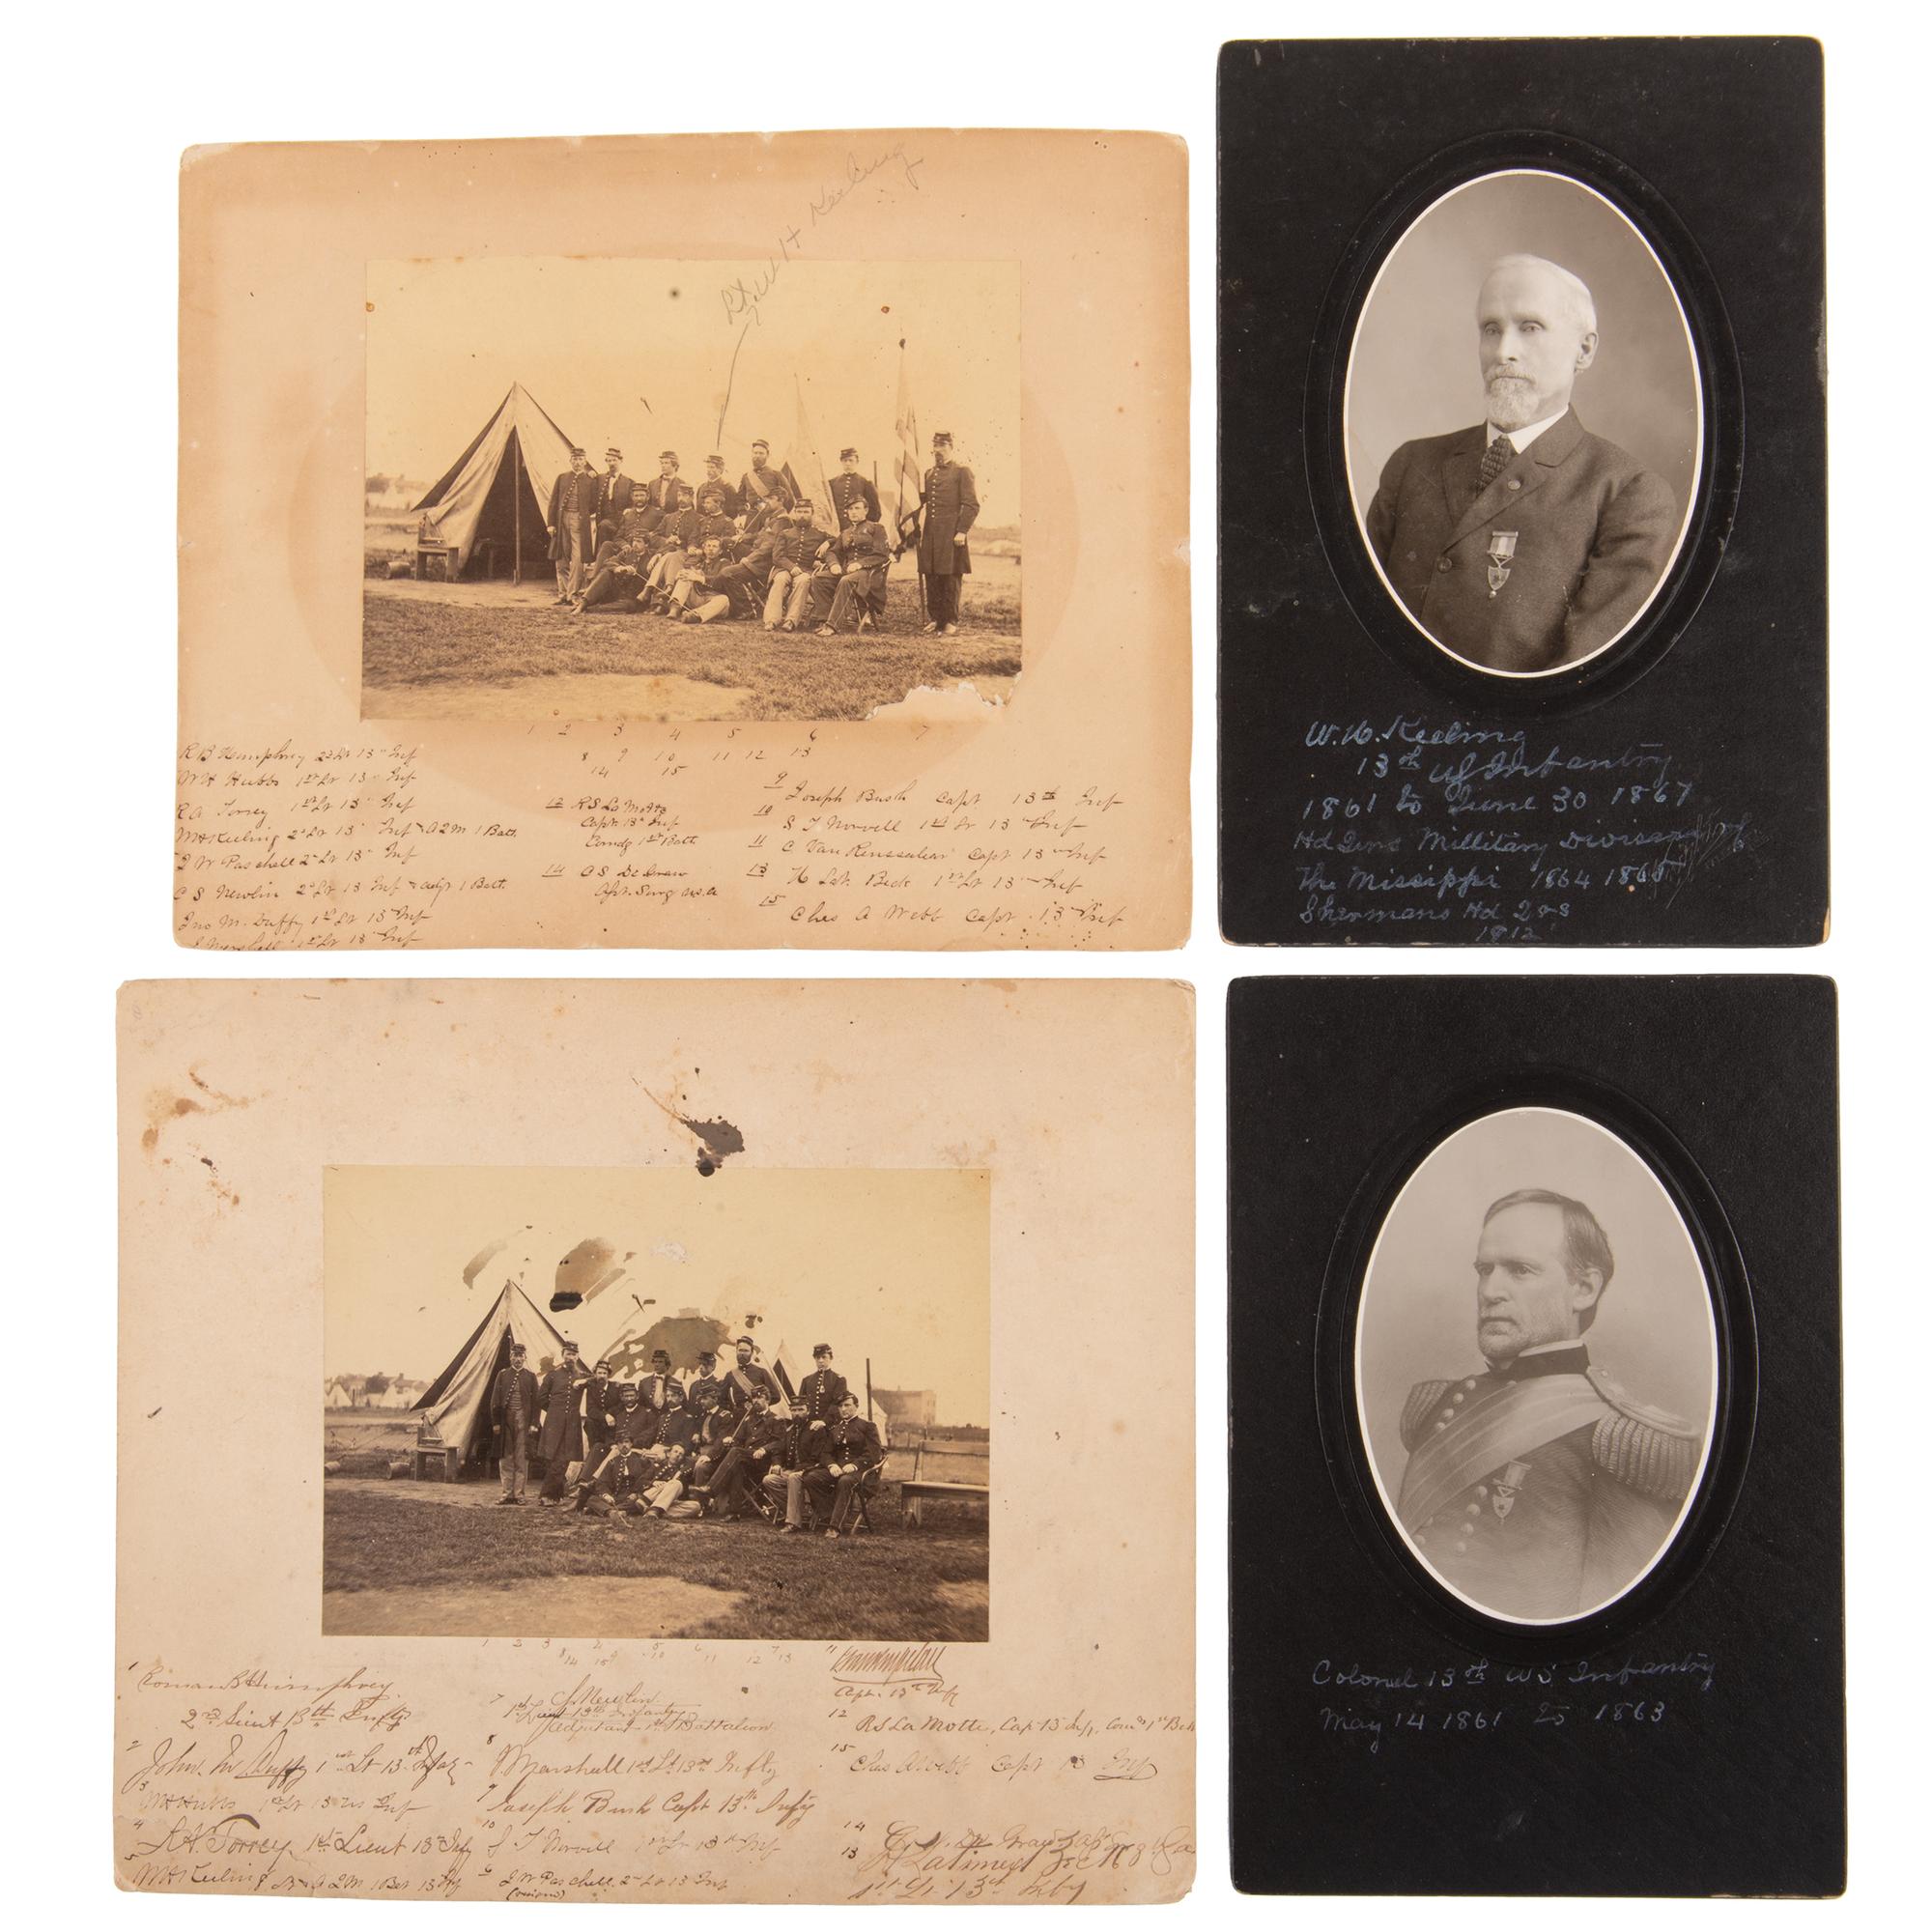 Lt W H Keeling
1 2 3 4 5 6 7
8 9 10 11 12 13
14 15
R B Humphrey 2nd Lt 13" Inf
W H Hubbs 1st Lt 13" Inf
R A Torrey 1st Lt 13" Inf
W H Keeling 2nd Lt 13" Inf & A 2 M 1 Batt.
J W Paschell 2" Lt 13" Inf
C S Newlin 2" Lt 13 Inf & adjt 1 Batt.
Jno M. Duffy 1st Lt 13" Inf
Marshall 1st Lt 13" Inf
12 R S La Motte
Capt. 13" Inf
Comdg 1st Batt
14 De Graw
Asst. Surg U.S.A
9 Joseph Bush Capt 13th Inf
10 S T Norvell 1st Lt 13" Inf
11 C Van Rensselaer Capt 13" Inf
13 1st Lt 13" Inf
15 Chas A Webb Capt. 13" Inf
W. H. Keeling
13th US Infantry
1861 to June 30 1867
Hd Millitary Division of
The Missippi 1864 1865
Shermans Hd Qrs
1912
1 2 3 4 5 6 7
8 9 10 11 12 13
14 15
1 Roman B Humphrey
2nd Lieut 13th Infty
2 John M Duffy 1st Lt 13th
3 W H Hubbs 1st Lt 13 US Inf
4 Torrey 1st Lieut 13th Inf
5 W H Keeling
7 Newlin
1st Lieut 13th Infantry
Adjutant 1st Battalion
8 Marshall 1st Lt 13th Infty
9 Joseph Bush Capt 13th Infy
10 S T Norvell 1st Lt 13th Inf
6 J W Paschell. 2" Lt 13 Inf
11
Capt. 13th Infy
12 R S La Motte, Cap 13 Inf, Com'g 1st Batt
15 Chas A Webb Capt 13 Inf
14
13 Latimer
1st Lt. 13th Infty
Colonel 13th US Infantry
May 14 1861 to 1863